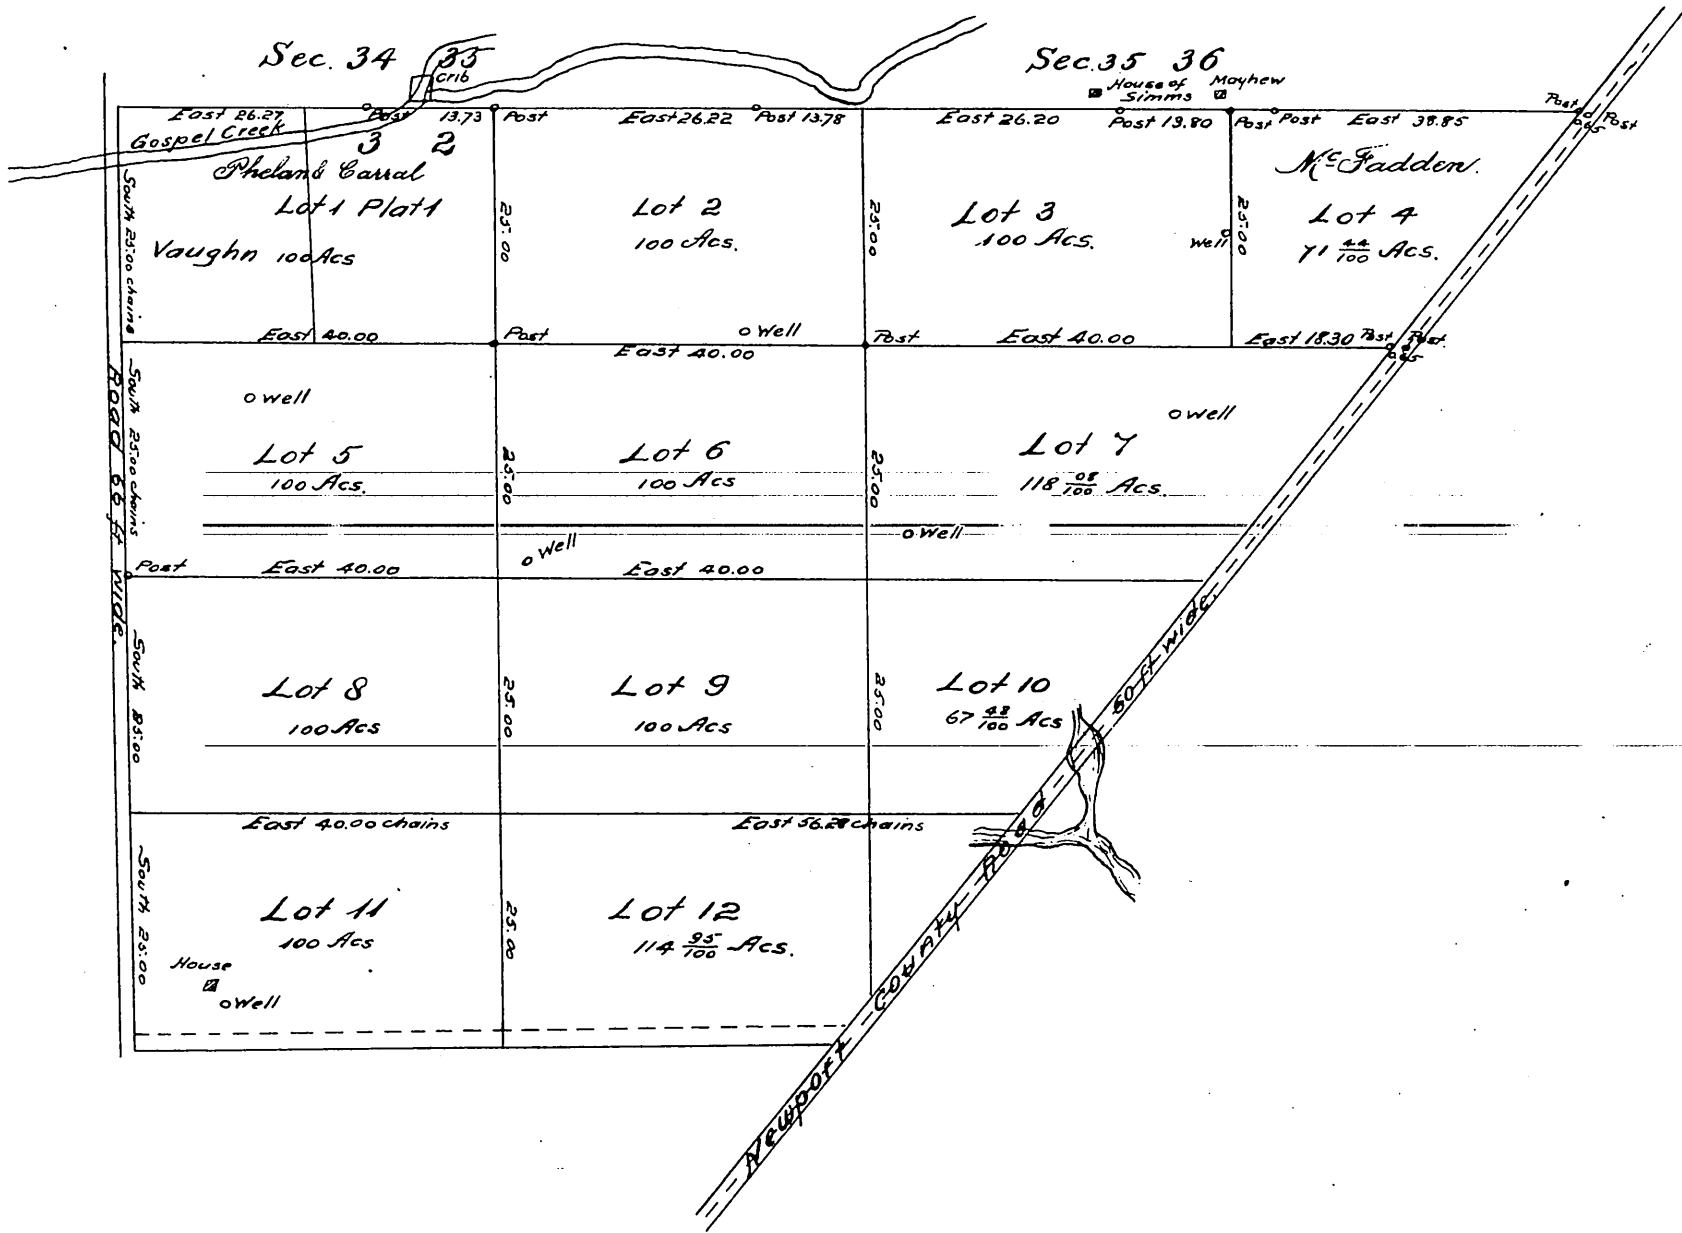 Sec. 34 35
Crib
Sec. 35 36
House of Simms
Mayhew
East 26.27
Post
13.73
Post
East 26.22
Post 13.78
East 26.20
Post 13.80
Post
Post
East 38.85
Post
.65
Post
Gospel Creek
3 2
Phelan & Carral
McFadden.
Lot 1 Plat 1
Vaughn 100 Acs
South 25.00 chains
25.00
Lot 2
100 Acs.
25.00
Lot 3
100 Acs.
Well
25.00
Lot 4
71 44/100 Acs.
East 40.00
Post
Well
East 40.00
Post
East 40.00
East 18.30
Post
.65
Post.
Road 66 ft wide.
South 25.00 chains
Well
Lot 5
100 Acs.
25.00
Lot 6
100 Acs.
25.00
Well
Lot 7
118 08/100 Acs.
Well
Well
Post
East 40.00
East 40.00
South 25.00
Lot 8
100 Acs
25.00
Lot 9
100 Acs
25.00
Lot 10
67 48/100 Acs
East 40.00 chains
East 56.28 chains
South 25.00
Lot 11
100 Acs
25.00
Lot 12
114 95/100 Acs.
House
Well
Newport County Road 60 ft wide.